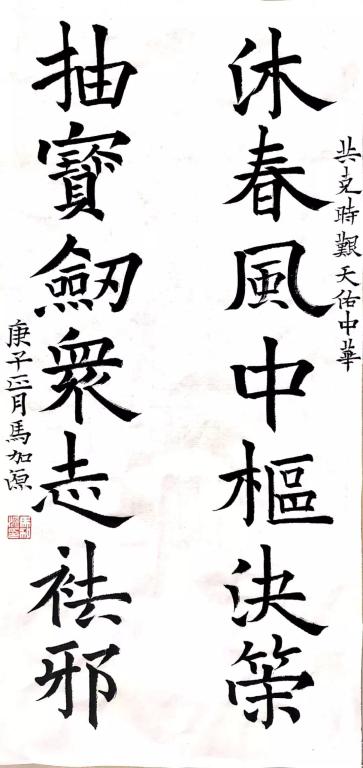 共克時艱天佑中華
沐春風中樞決策
抽寶劔衆志祛邪
庚子正月馬加源